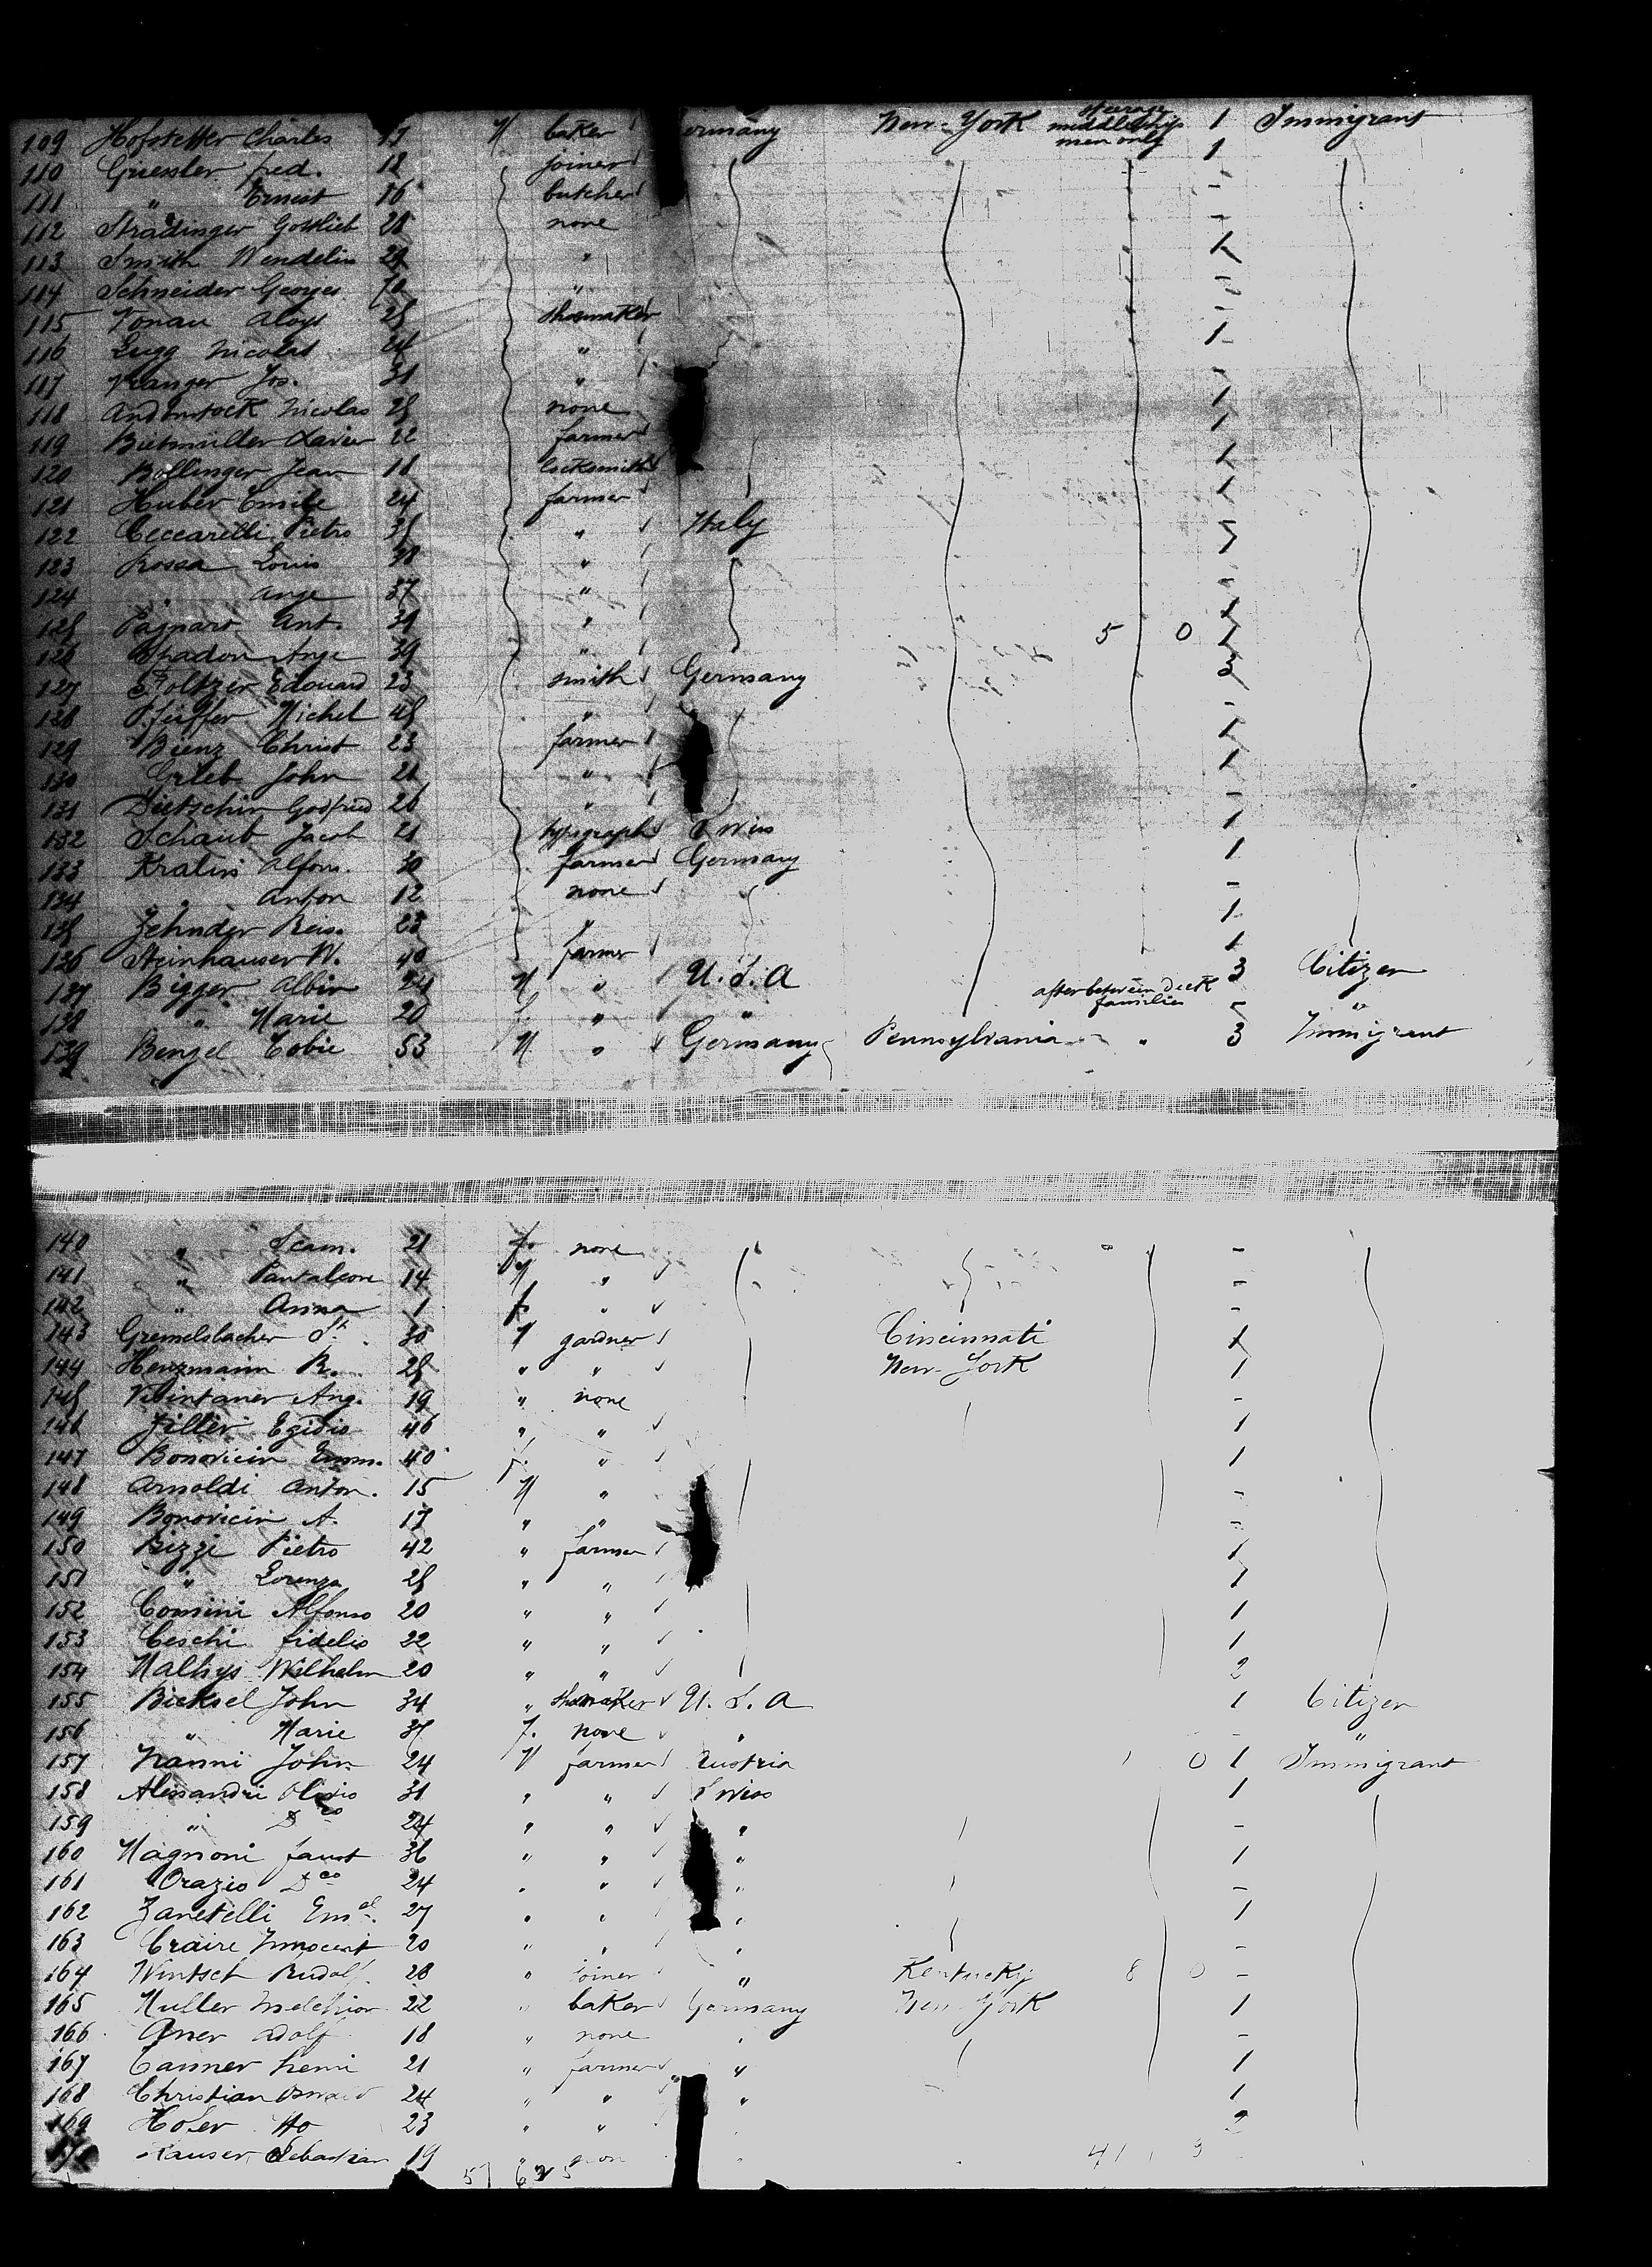 109 Hofstetter Charles 17 M baker ermany New-York steerage middleships men only 1 Immigrant
110 Giessler fred. 18 joiner 1
111 " Ernest 16 butcher -
112 Stradinger Gottlieb 28 none -
113 Smith Wendelin 29 " 1
114 Schneider Georges " -
115 Vonau Aloys 25 shoemaker -
116 Lugg Nicolas 24 " 1
117 Jos. 31 " -
118 Nicolas 25 none 1
119 Xavier 22 farmer 1
120 Bollinger Jean 18 locksmith 1
121 Huber Emile 24 farmer 1
122 Ceccarelli Pietro 35 " Italy 5
123 Rossa Louis 38 " -
124 " Ange 37 " -
125 Ant. 39 " 1
126 Ange 39 " 5 0 1
127 Edouard 23 smith Germany 3
128 Pfeiffer Michel 45 " -
129 Bienz Christ 23 farmer 1
130 John 21 " 1
131 Dietschin Godfried 26 " -
132 Schaub Jacob 21 typograph Swiss 1
133 Alfons. 30 farmer Germany 1
134 " Anton 12 none -
135 Zehnder 23 " 1
136 Steinhauser W. 40 farmer 1
137 Bigger Albin 24 M " U.S.A after between deck families 3 Citizen
138 " Marie 20 f. " " "
139 Benzel Tobie 53 M. " Germany Pennsylvania " 3 Immigrant
140 " 21 f. none -
141 " Pantaleon 14 M " -
142 " Anna 1 f. " -
143 Gremelsbacher St. 30 M gardner Cincinnati 1
144 Henzmann R. 25 " " New-York 1
145 Aug. 19 " none -
146 Egidio 46 " " 1
147 Bonovicin Emm. 40 f. " 1
148 Arnoldi Anton. 15 M " -
149 Bonovicin A. 17 " " -
150 Bizzi Pietro 42 " farmer 1
151 " Lorenzo 25 " " 1
152 Comini Alfonso 20 " " 1
153 Ceschi fidelio 22 " " 1
154 Mathys Wilhelm 20 " " 2
155 Bicksel John 34 " shomaker U.S.A 1 Citizen
156 " Marie 35 f. none " "
157 Nanni John 24 M farmer Austria 1 0 1 Immigrant
158 Alessandri 31 " " Swiss 1
159 " Dco 24 " " " -
160 Magnoni faust 36 " " " 1
161 Orazio Dco 24 " " " -
162 Zanetelli Emel. 27 " " " 1
163 Craire Innocent 20 " " " -
164 Wintsch Rudolf. 28 " joiner " Kentucky 8 0 -
165 Muller Melchior 22 " baker Germany New-York 1
166 Adolf 18 " none " -
167 Tanner henri 21 " farmer " 1
168 Christian Oswald 24 " " " 1
169 Hofer 23 " " 2
Sebastian 19 " non "